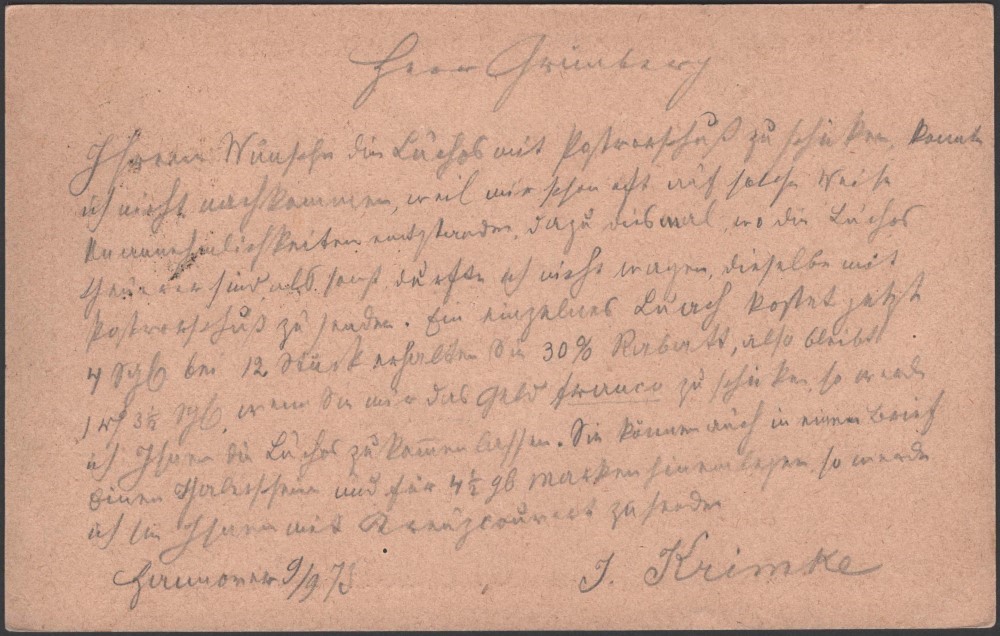 Herr Grünberg
Ihrem Wunsche die Luchos mit Postvorschuß zu schicken, konnte
ich nicht nachkommen, weil mir schon oft auf solche Weise
Unannehmlichkeiten entstanden, dazu diesmal, wo die Luchos
theurer sind als sonst durfte ich nicht wagen, dieselbe mit
Postvorschuß zu senden. Ein einzelnes Luach kostet jetzt
4 Sgl bei 12 Stück erhalten Sie 30% Rabatt, also bleibt
1 rℓ 3½ Sgl, wenn Sie mir das Geld franco zu schicken so werde
ich Ihnen die Luchos zukommen lassen. Sie können auch in einem Brief
einen Thalerschein und für 4½ gl Marken hineinlegen so werde
ich sie Ihnen mit Kreuzcouvert zusenden
Hannover 9/9 73 J. Krimke